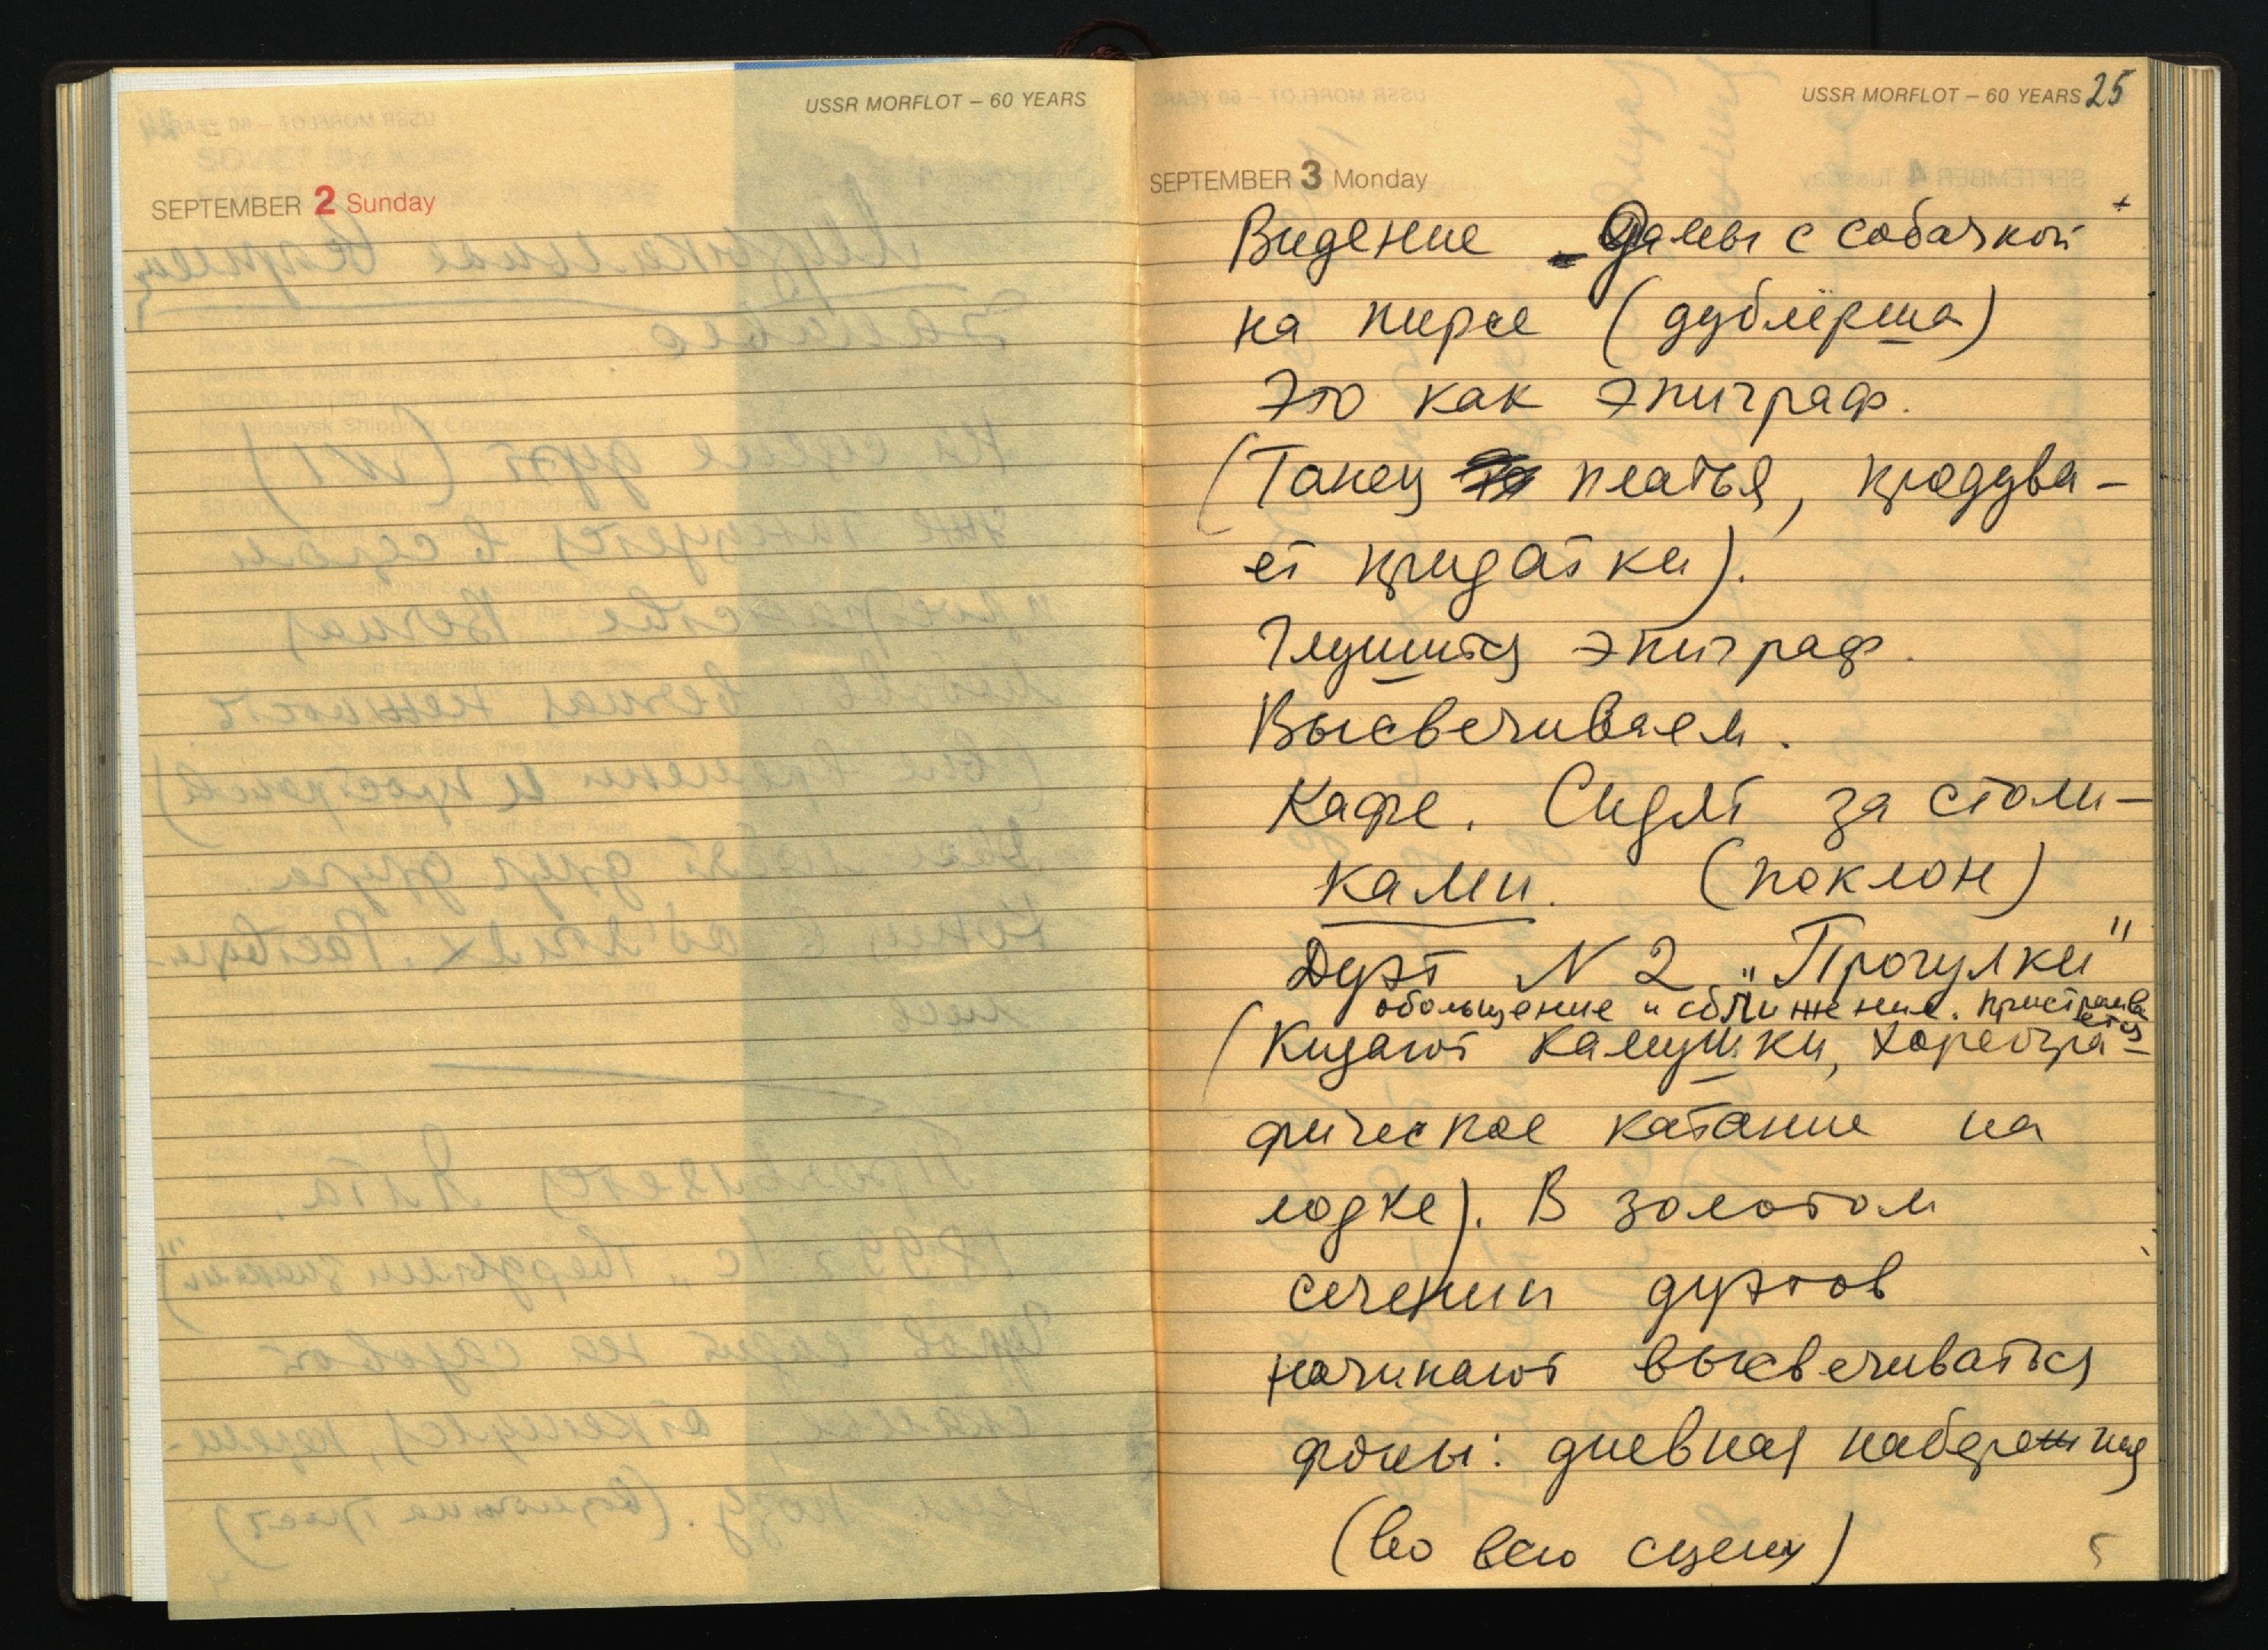 USSR MORFLOT – 60 YEARS
SEPTEMBER 2 Sunday
USSR MORFLOT – 60 YEARS 25
SEPTEMBER 3 Monday
Видение – Дамы с собачкой +
на пирсе (дублёрша)
Это как эпиграф.
(Танец платья, продува-
ет придатки).
Глушится эпиграф.
Высвечиваем.
Кафе. Сидят за столи-
ками. (поклон)
Дуэт N 2 „Прогулки"
обольщение и сближение. пристраива
ется
(Кидают камушки, хореогра-
фическое катание на
лодке). В золотом
сечении дуэтов
начинают высвечиваться
фоны: дневная набережная
(во всю сцену)
5